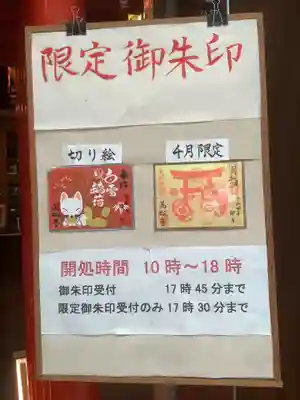 限定御朱印
切り絵
4月限定
開処時間 10時～18時
御朱印受付 17時45分まで
限定御朱印受付のみ 17時30分まで